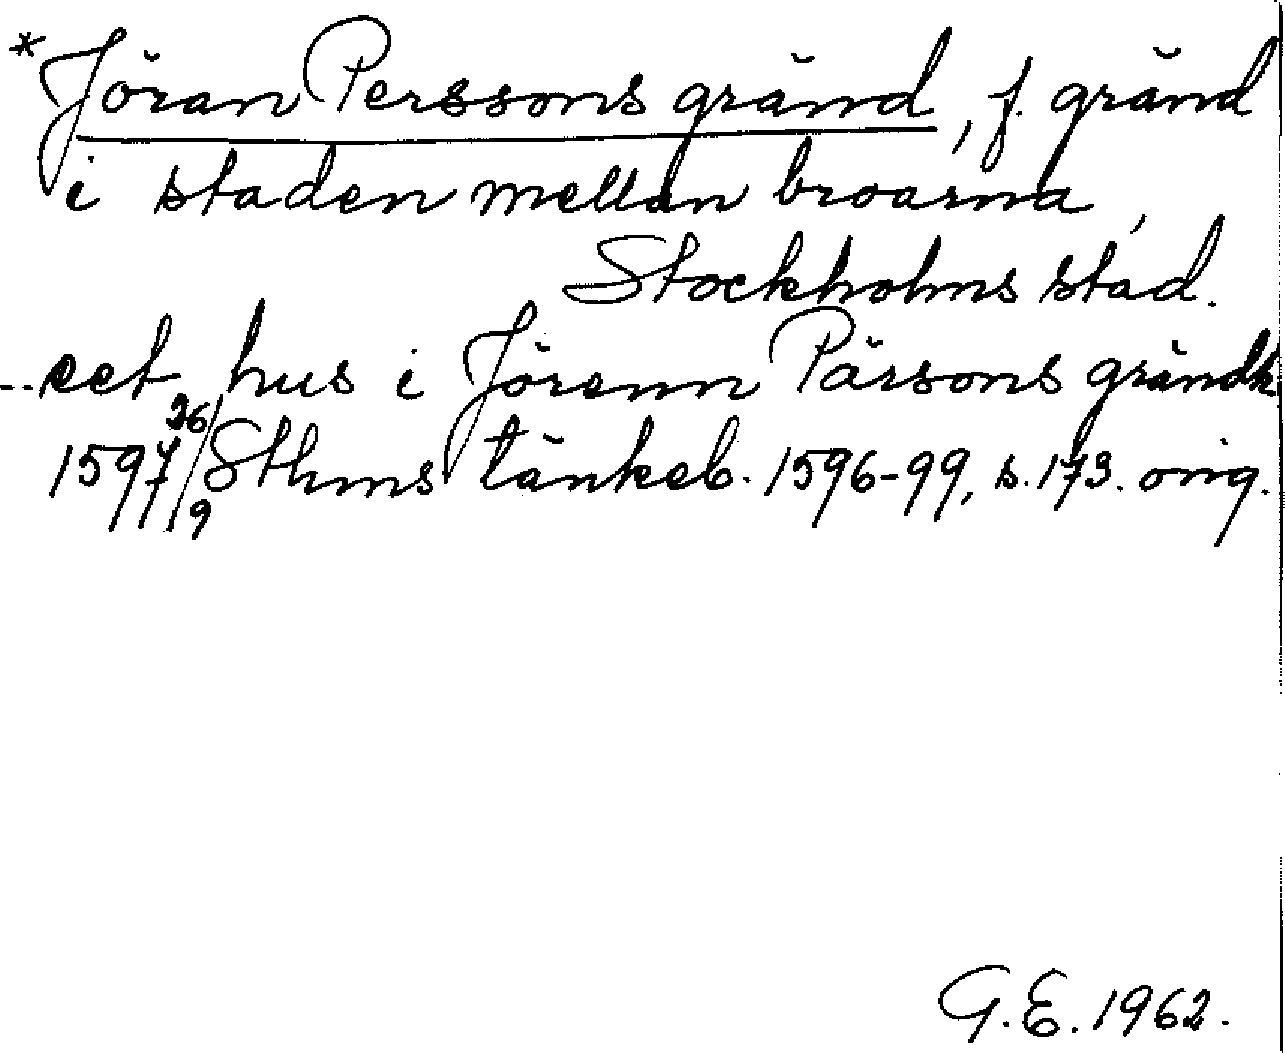 *Jöran Perssons gränd, f. gränd
i staden mellan broarna,
Stockholms stad.
--eet hus i Jörenn Pärsons grändh
1597 26/9 Sthms tänkeb. 1596-99, s. 173. orig.
G.E. 1962.